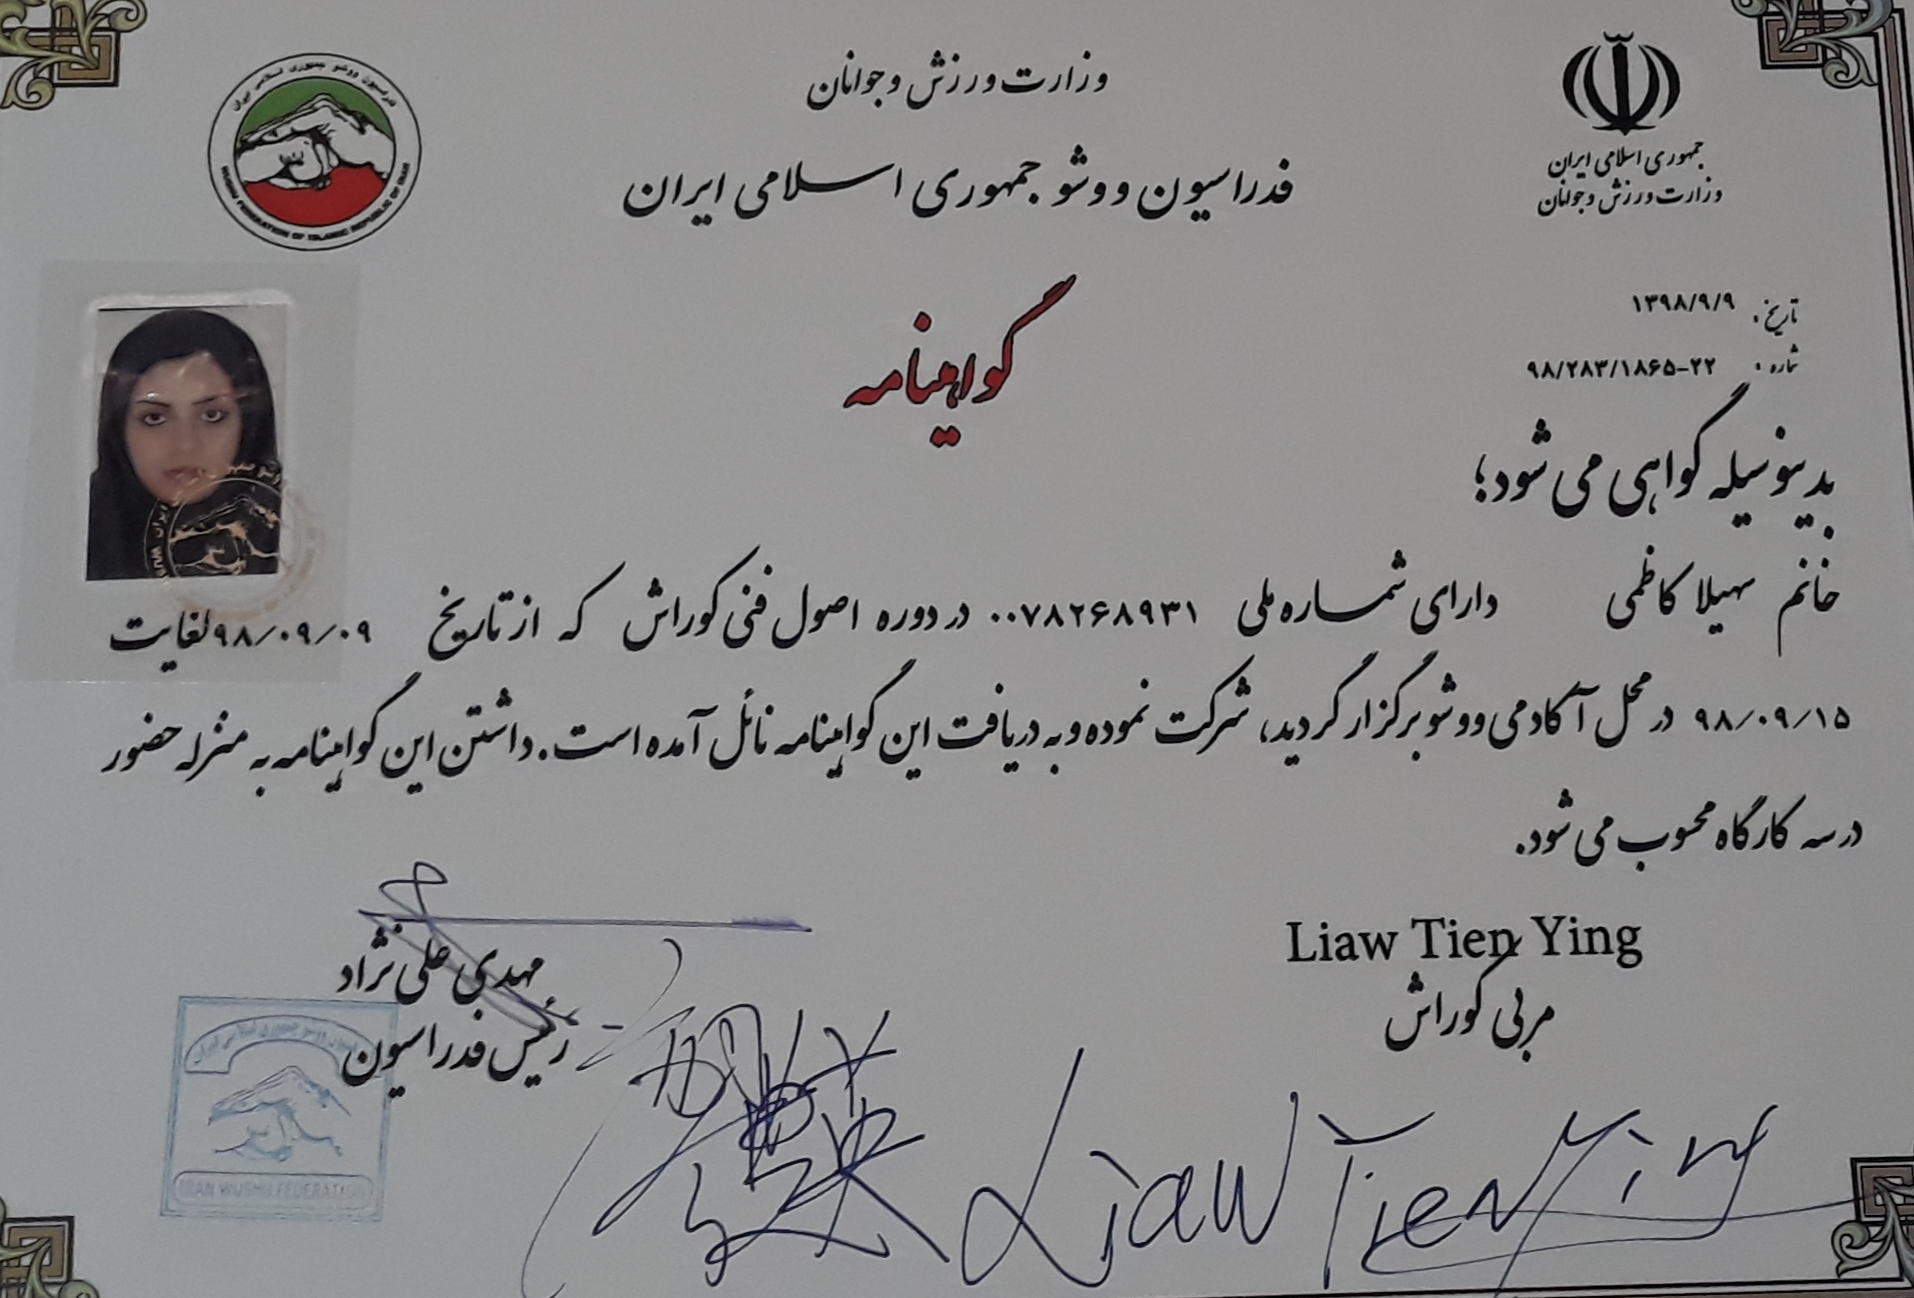 وزارت ورزش و جوانان
فدراسیون ووشو جمهوری اسلامی ایران
جمهوری اسلامی ایران
وزارت ورزش و جوانان
WUSHU FEDERATION OF ISLAMIC REPUBLIC OF IRAN
فدراسیون ووشو جمهوری اسلامی ایران
تاریخ: ۱۳۹۸/۹/۹
شماره: ۹۸/۲۸۳/۱۸۶۵-۲۲
گواهینامه
بدینوسیله گواهی می شود؛
خانم سهیلا کاظمی دارای شماره ملی ۰۰۷۸۲۶۸۹۳۱ در دوره اصول فنی کوراش که از تاریخ ۹۸/۰۹/۰۹ لغایت
۹۸/۰۹/۱۵ در محل آکادمی ووشو برگزار گردید، شرکت نموده و به دریافت این گواهینامه نائل آمده است. داشتن این گواهینامه به منزله حضور
در سه کارگاه محسوب می شود.
Liaw Tien Ying
مربی کوراش
مهدی علی نژاد
رئیس فدراسیون
IRAN WUSHU FEDERATION
Liaw Tien Ying